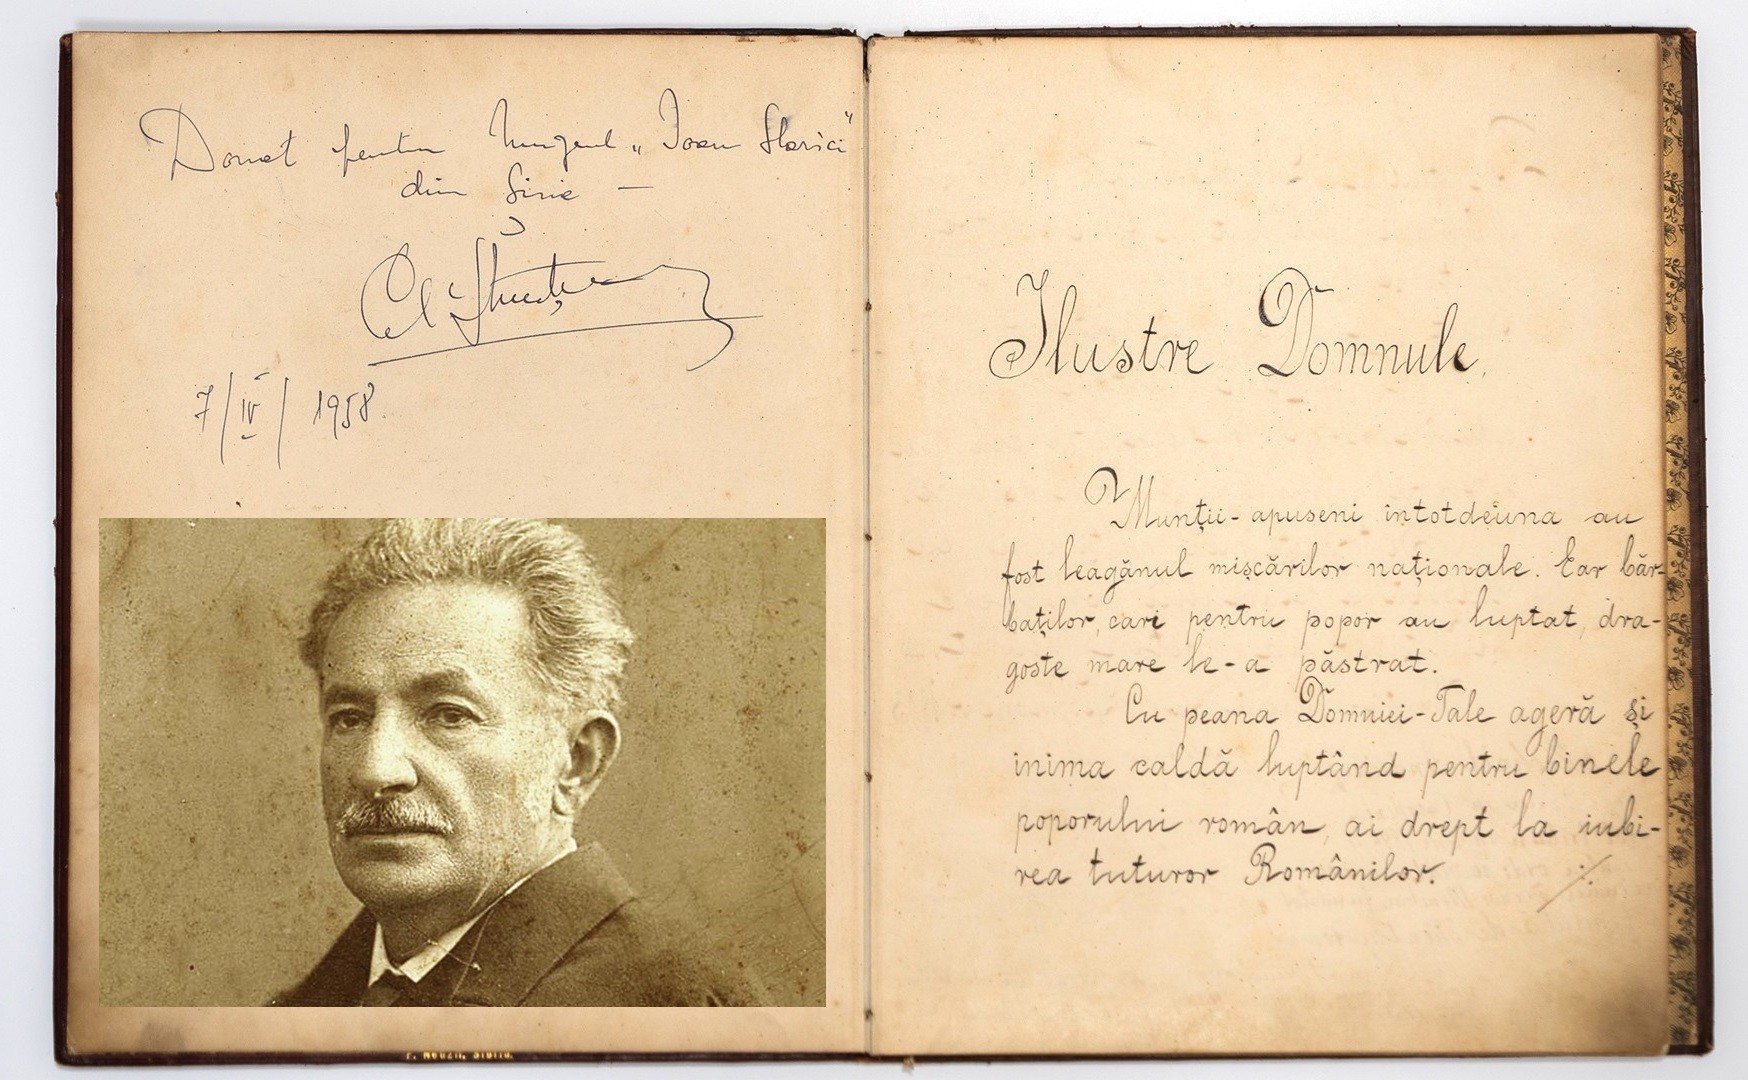 Donat pentru Muzeul „Ioan Slavici"
din Siria —
7/IV/1958.
Ilustre Domnule,
Munții-apuseni intotdeiuna au
fost leagănul mișcărilor naționale. Ear băr-
baților, cari pentru popor au luptat, dra-
goste mare le-a păstrat.
Cu peana Domniei-Tale ageră și
inima caldă luptând pentru binele
poporului român, ai drept la iubi-
rea tuturor Românilor.
./.